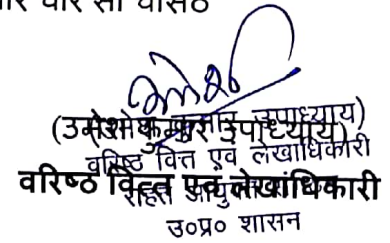 चार सौ
(उमेश कुमार उपाध्याय)
(उमेश कुमार उपाध्याय)
वरिष्ठ वित्त एवं लेखाधिकारी
वरिष्ठ वित्त एवं लेखाधिकारी
राहत आयुक्त
उ०प्र० शासन